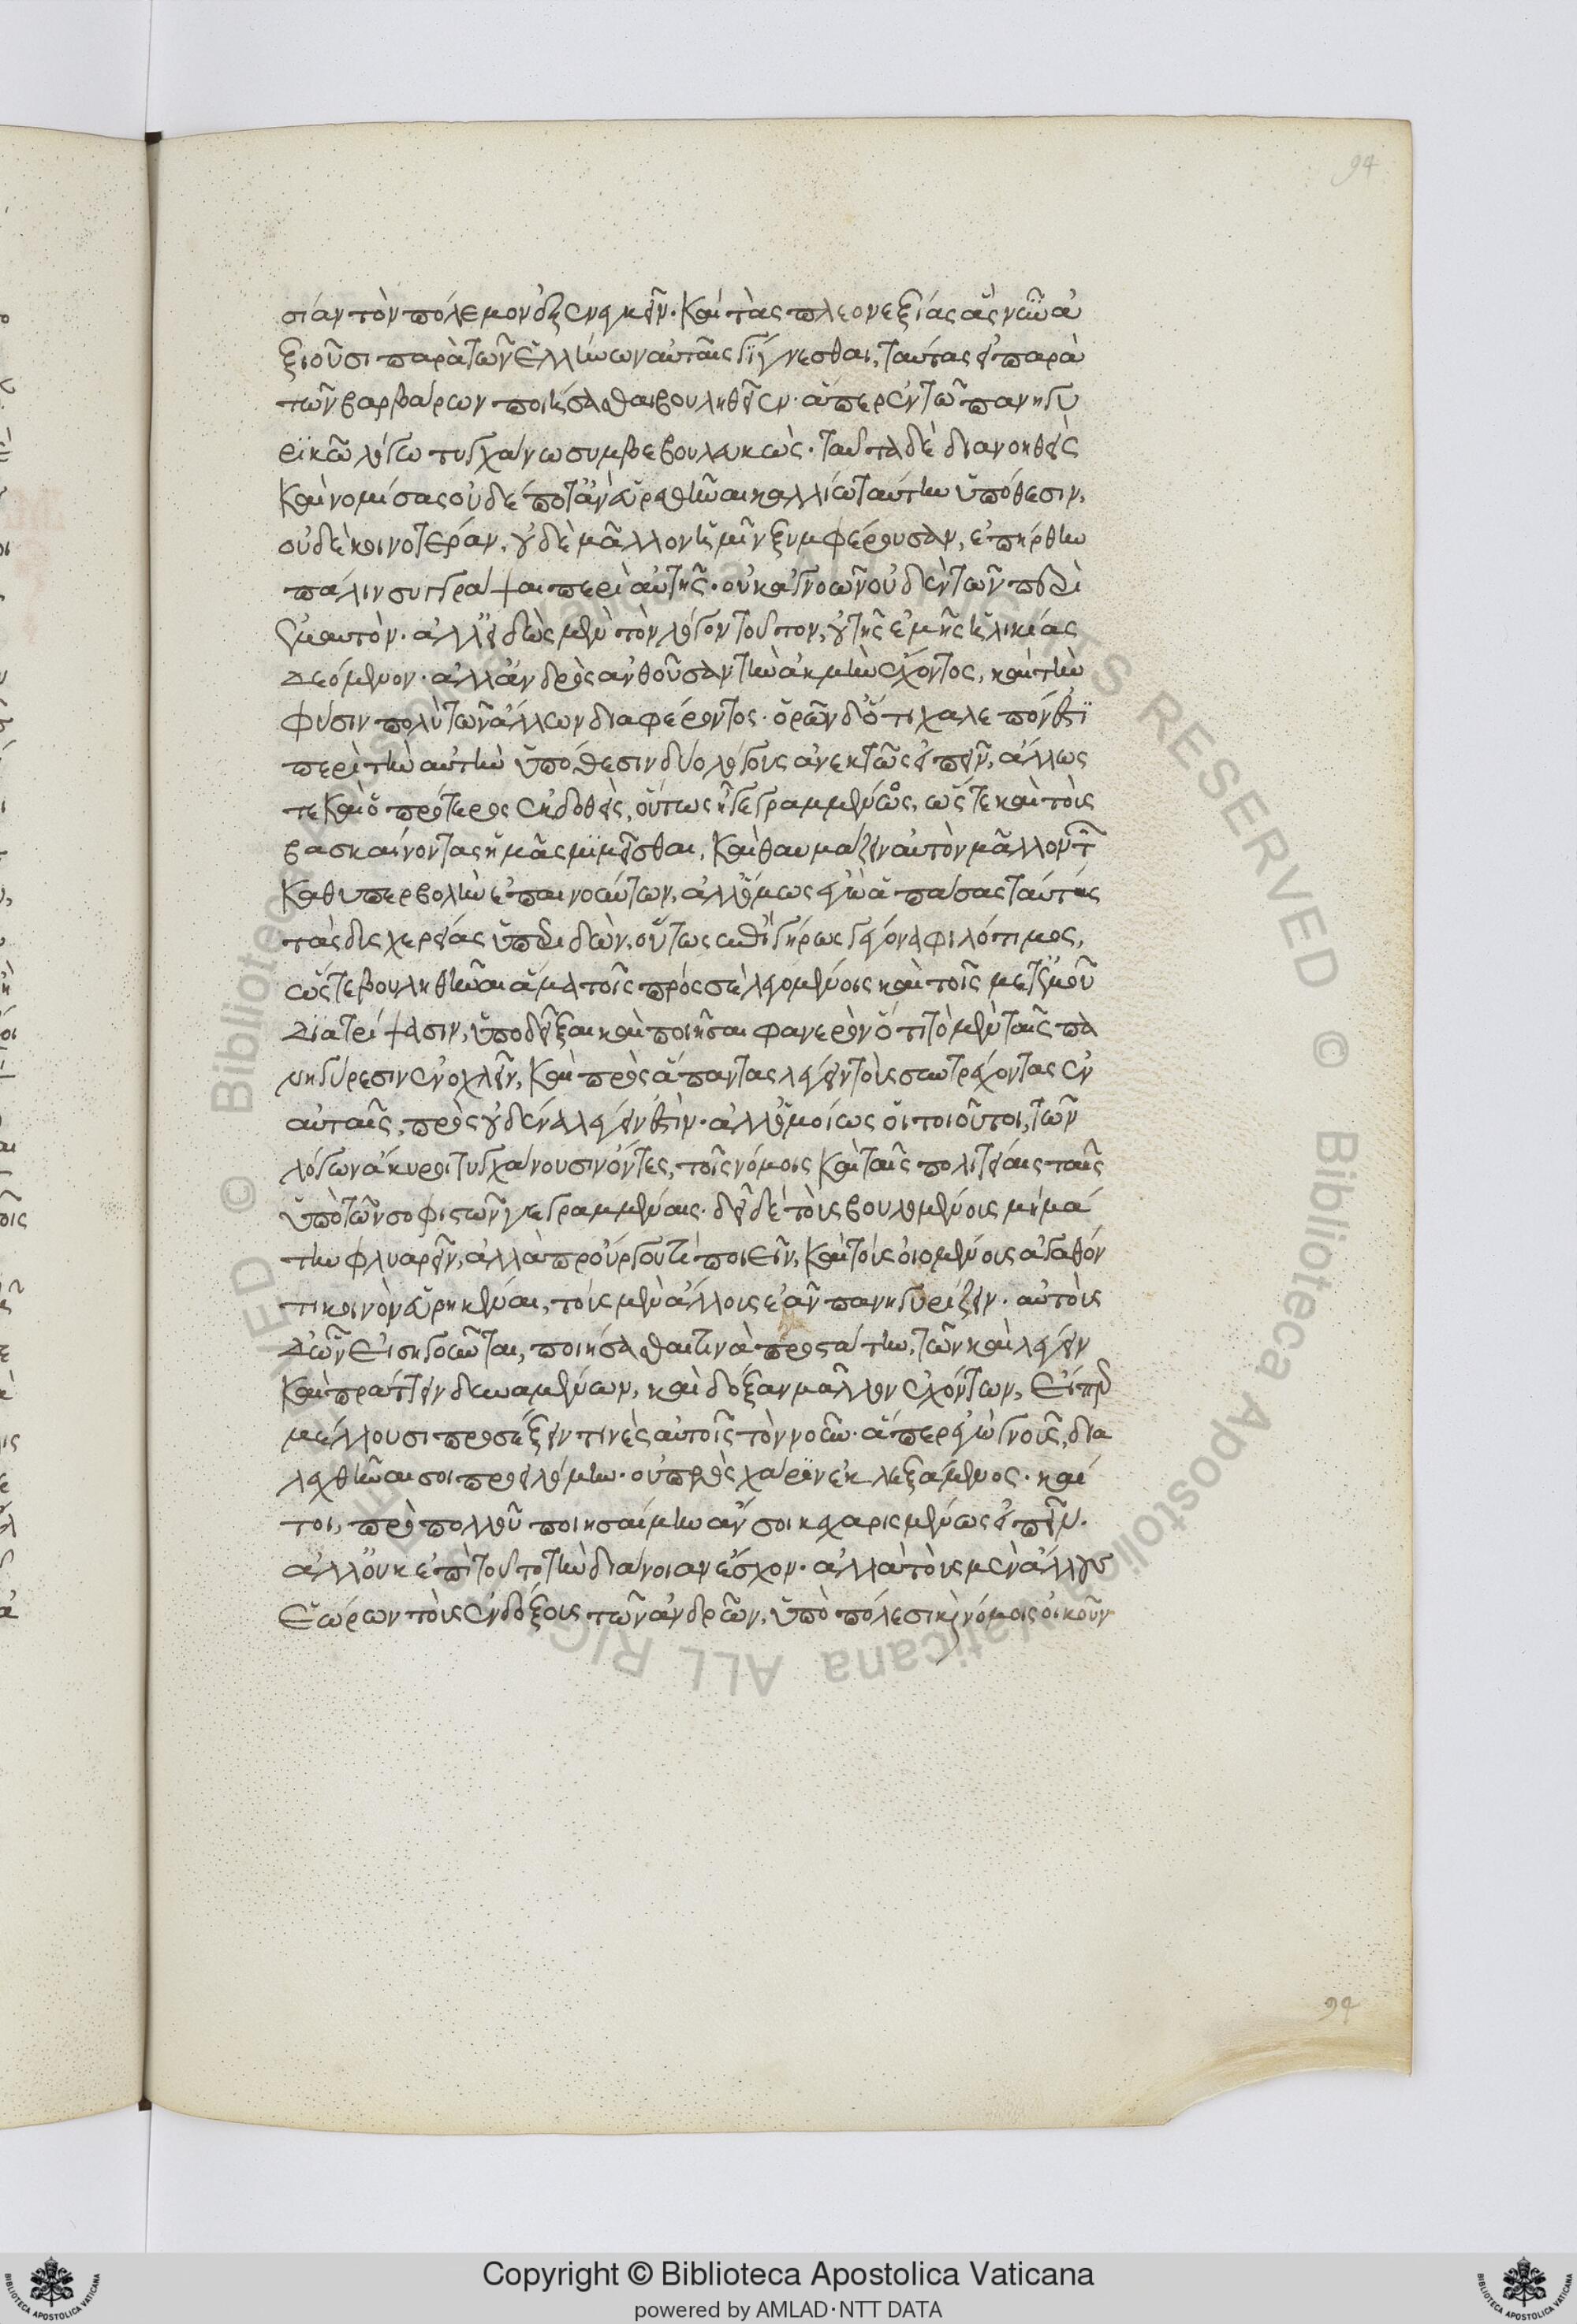 94
σίαν τὸν πόλεμον ἐξενεγκεῖν. Καὶ τὰς πλεονεξίας ἃς νῦν ἀ
ξιοῦσι παρὰ τῶν Ἑλλήνων αὐταῖς γίγνεσθαι, ταύτας εἰ παρὰ
τῶν βαρβάρων ποιήσασθαι βουληθεῖεν. ἅπερ ἐν τῷ πανηγυ
ρικῷ λόγῳ τυγχάνω συμβεβουλευκώς. ταῦτα δὲ διανοηθεὶς
Καὶ νομίσας οὐδέποτ' ἂν εὑρεθῆναι καλλίω ταύτην ὑπόθεσιν,
οὐδὲ κοινοτέραν, οὐδὲ μᾶλλον ἡμῖν ξυμφέρουσαν, ἐπήρθην
πάλιν συγγράψαι περὶ αὐτῆς. οὐκ ἀγνοῶν οὐδὲν τῶν περὶ
ἐμαυτὸν. ἀλλ' εἰδὼς μὲν τὸν λόγον τοῦτον, οὐ τῆς ἐμῆς ἡλικίας
δεόμενον. ἀλλ' ἀνδρὸς ἀνθοῦσαν τὴν ἀκμὴν ἔχοντος, καὶ τὴν
φύσιν πολὺ τῶν ἄλλων διαφέροντος. ὁρῶν δ' ὅτι χαλεπόν ἐστι
περὶ τὴν αὐτὴν ὑπόθεσιν δύο λόγους ἀνεκτῶς εἰπεῖν, ἄλλως
τε Καὶ ὁ πρότερος ἐκδοθεὶς, οὕτως ᾖ γεγραμμένος, ὥστε καὶ τοὺς
βασκαίνοντας ἡμᾶς μιμεῖσθαι, Καὶ θαυμάζειν αὐτὸν μᾶλλον τῶν
Καθ' ὑπερβολὴν ἐπαινούντων, ἀλλ' ὅμως ἐγὼ ἁπάσας ταύτας
τὰς δυσχερείας ὑπεριδὼν, οὕτως ἐπὶ γήρως γέγονα φιλότιμος,
ὥστε βουληθῆναι ἅμα τοῖς πρός σὲ λεγομένοις καὶ τοῖς μετ' ἐμοῦ
διατρίψασιν, ὑποδεῖξαι καὶ ποιῆσαι φανερὸν ὅτι τὸ μὲν ταῖς πα
νηγύρεσιν ἐνοχλεῖν, Καὶ πρὸς ἅπαντας λέγειν τοὺς συντρέχοντας ἐν
αὐταῖς, πρὸς οὐδένα λέγειν ἐστὶν. ἀλλ' ὁμοίως οἱ τοιοῦτοι, τῶν
λόγων ἄκυροι τυγχάνουσιν ὄντες, τοῖς νόμοις Καὶ ταῖς πολιτείαις ταῖς
ὑπὸ τῶν σοφιστῶν γεγραμμέναις. δεῖ δὲ τοὺς βουλομένους μὴ μά
την φλυαρεῖν, ἀλλὰ προὔργου τί ποιεῖν, Καὶ τοὺς οἰομένους ἀγαθόν
τι κοινὸν εὑρηκέναι, τοὺς μὲν ἄλλους ἐᾶν πανηγυρίζειν. αὐτοὺς
δ' ὧν εἰσηγοῦνται, ποιήσασθαι τινὰ προστάτην, τῶν καὶ λέγειν
Καὶ πράττειν δυναμένων, καὶ δόξαν μᾶλλον ἐχόντων, εἴπερ
μέλλουσι προσέξειν τινὲς αὐτοῖς τὸν νοῦν. ἅπερ ἐγὼ γνοὺς, δια
λεχθῆναι σοι προειλόμην. οὐ πρὸς χάριν ἐκλεξάμενος. καί
τοι, πρὸ πολλοῦ ποιησαίμην ἄν σοι κεχαρισμένως εἰπεῖν.
ἀλλ' οὐκ ἐπὶ τούτῳ τὴν διάνοιαν ἔσχον. ἀλλὰ τοὺς μὲν ἄλλους
ἑώρων τοὺς ἐνδόξους τῶν ἀνδρῶν, ὑπὸ πόλεσι καὶ νόμοις οἰκοῦν
94
© Biblioteca Apostolica Vaticana ALL RIGHTS RESERVED
Copyright © Biblioteca Apostolica Vaticana
powered by AMLAD·NTT DATA